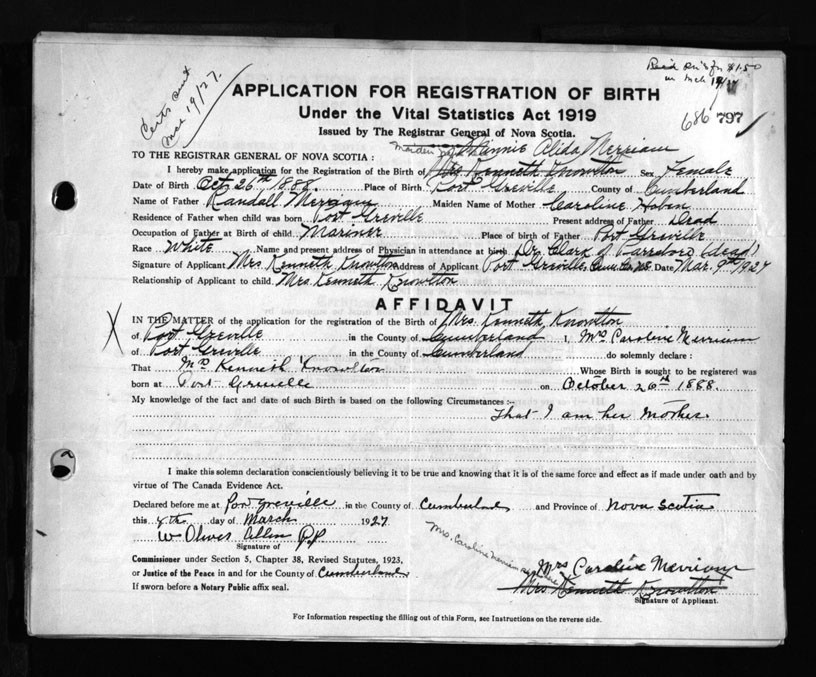 Certs sent
Mch 19/27.
$1.50
in Mch 19/27
APPLICATION FOR REGISTRATION OF BIRTH
Under the Vital Statistics Act 1919
686 797
Issued by The Registrar General of Nova Scotia.
Maiden Minnie Alida Merriam
TO THE REGISTRAR GENERAL OF NOVA SCOTIA :
I hereby make application for the Registration of the Birth of Mrs Kenneth Knowlton Sex Female
Date of Birth Oct 26th 1888. Place of Birth Port Greville County of Cumberland
Name of Father Randall Merriam Maiden Name of Mother Caroline Hoben
Residence of Father when child was born Port Greville Present address of Father Dead
Occupation of Father at Birth of child. Mariner Place of birth of Father Port Greville
Race White Name and present address of Physician in attendance at birth Dr Clark of Parrsboro (dead)
Signature of Applicant Mrs Kenneth Knowlton Address of Applicant Port Greville, Cum. Co. N.S. Date Mar. 9th 1927
Relationship of Applicant to child. Mrs Kenneth Knowlton
AFFIDAVIT
IN THE MATTER of the application for the registration of the Birth of Mrs. Kenneth Knowlton
X of Port Greville in the County of Cumberland I, Mrs Caroline Merriam
of Port Greville in the County of Cumberland do solemnly declare :
That Mrs Kenneth Knowlton Whose Birth is sought to be registered was
born at Port Greville on October 26th 1888.
My knowledge of the fact and date of such Birth is based on the following Circumstances :-
That I am her Mother.
I make this solemn declaration conscientiously believing it to be true and knowing that it is of the same force and effect as if made under oath and by
virtue of The Canada Evidence Act.
Declared before me at Port Greville in the County of Cumberland and Province of Nova Scotia
this 9th day of March 1927.
W Oliver Allen J.P.
Signature of
Mrs. Caroline Merriam
Commissioner under Section 5, Chapter 38, Revised Statutes, 1923,
Mrs Caroline Merriam
or Justice of the Peace in and for the County of Cumberland
Mrs Kenneth Knowlton
If sworn before a Notary Public affix seal.
Signature of Applicant.
For Information respecting the filling out of this Form, see Instructions on the reverse side.